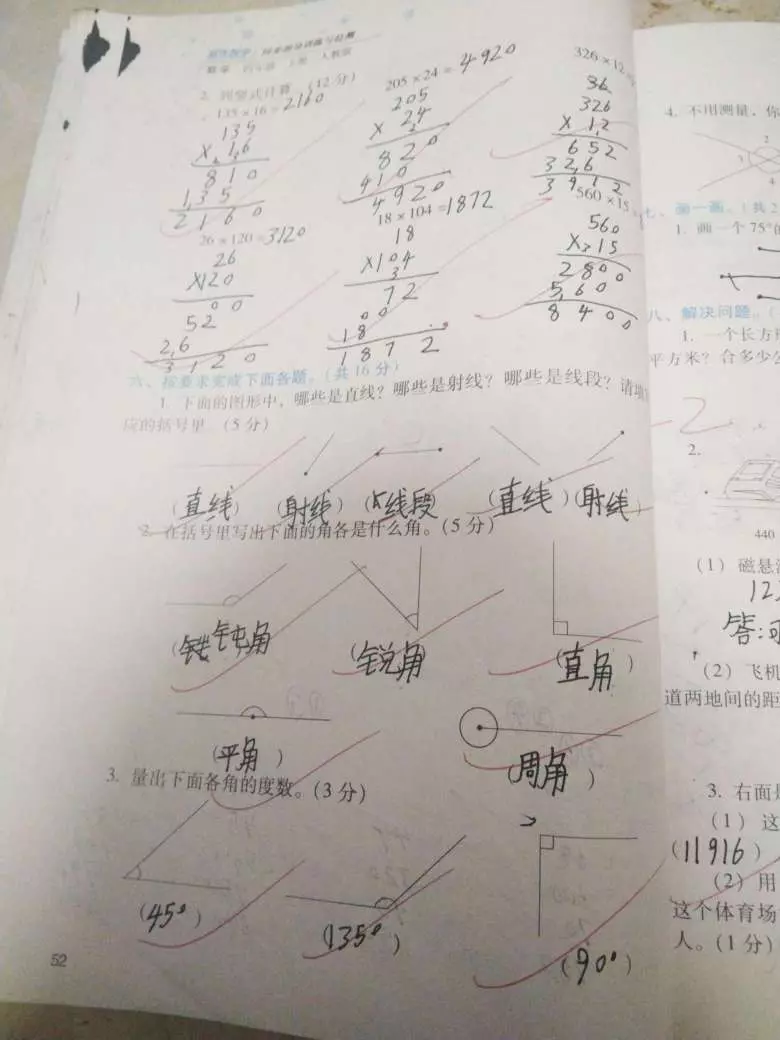 2. 列竖式计算。(12分)
135×16=2160
205×24=4920
326×12
135
×16
810
135
2160
205
×24
820
410
4920
36
326
×12
652
326
3912
26×120=3120
18×104=1872
560×15
26
×120
00
52
26
3120
18
×104
72
00
18
1872
560
×15
2800
560
8400
六、按要求完成下面各题。(共16分)
1. 下面的图形中，哪些是直线？哪些是射线？哪些是线段？请填
应的括号里。(5分)
(直线) (射线) (线段) (直线) (射线)
2. 在括号里写出下面的角各是什么角。(5分)
(钝角) (锐角) (直角)
(平角) (周角)
3. 量出下面各角的度数。(3分)
(45°) (135°) (90°)
52
4. 不用测量，你
2
3
4
七、画一画。(共2
1. 画一个75°的
八、解决问题。(
1. 一个长方形
平方米？合多少公
2.
440
(1) 磁悬浮
答:
(2) 飞机
道两地间的距
3. 右面是
(1) 这
(11916)
(2) 用
这个体育场
人。(1分)